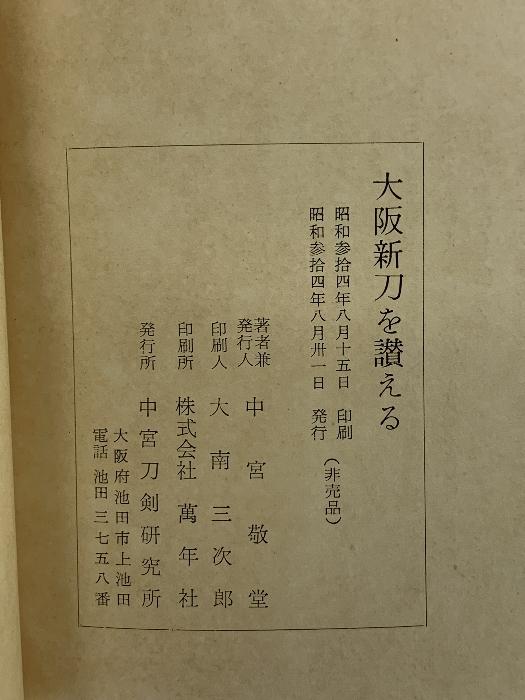 大阪新刀を讃える
昭和参拾四年八月十五日 印刷
昭和参拾四年八月卅一日 発行
(非売品)
著者兼発行人 中宮敬堂
印刷人 大南三次郎
印刷所 株式会社 萬年社
発行所 中宮刀剣研究所
大阪府池田市上池田
電話 池田 三七五八番